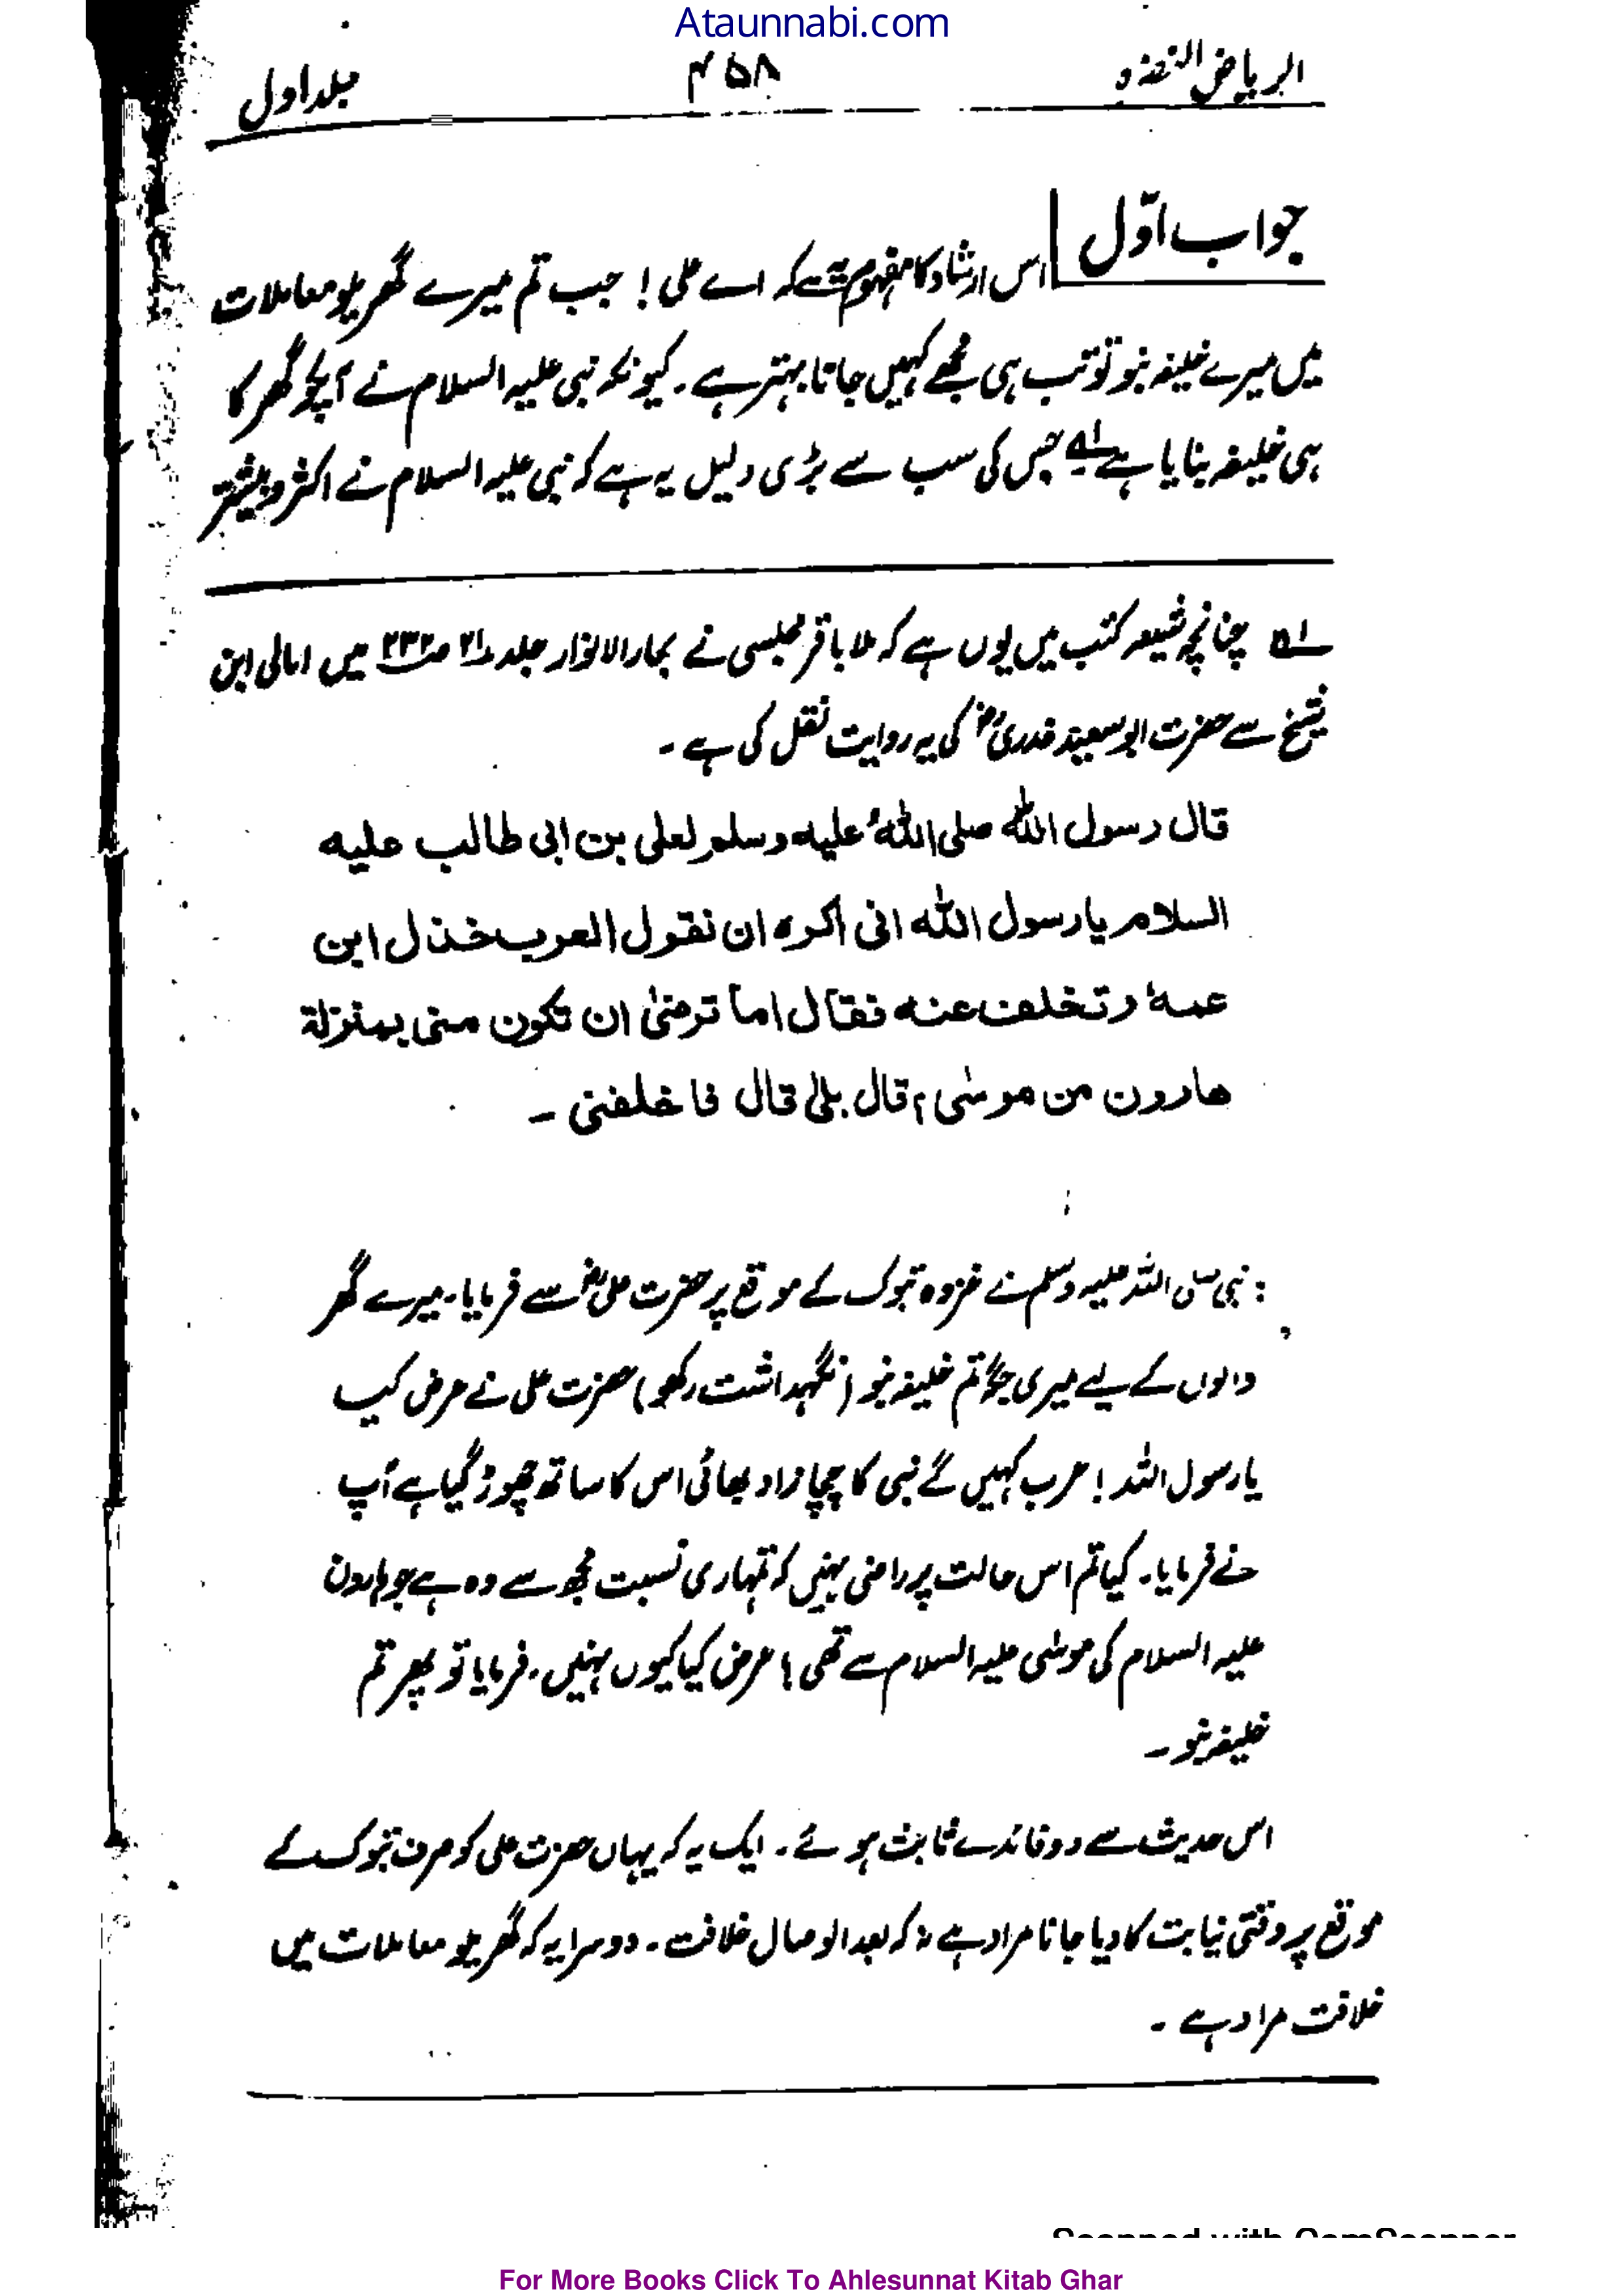 Ataunnabi.com
الریاض النضرہ ۴۵۸ جلد اول
جواب اوّل
اس ارشاد کا مفہوم یہ ہے کہ اے علی! جب تم میرے گھریلو معاملات
میں میرے خلیفہ بنو تو تب ہی مجھے کہیں جانا بہتر ہے۔ کیونکہ نبی علیہ السلام نے آپکو گھر کا
ہی خلیفہ بنایا ہے لہ جس کی سب سے بڑی دلیل یہ ہے کہ نبی علیہ السلام نے اکثر و بیشتر
لہ چنانچہ شیعہ کتب میں یوں ہے کہ ملا باقر مجلسی نے بحار الانوار جلد ۲۱ ص ۲۳۲ میں امالی ابن
شیخ سے حضرت ابوسعید خدریؓ کی یہ روایت نقل کی ہے۔
قال رسول اللہ صلی اللہُ علیہ وسلم لعلی بن ابی طالب علیہ
السلام یا رسول اللہ انی اکرہ ان نقول العرب خذل ابن
عمہٗ وتخلف عنہ فقال اما ترضیٰ ان تکون منی بمنزلة
ھارون من موسٰی؟ قال بلٰی قال فاخلفنی ۔
: نبی صلی اللہ علیہ وسلم نے غزوہ تبوک کے موقع پر حضرت علیؓ سے فرمایا۔ میرے گھر
والوں کے لیے میری جگہ تم خلیفہ بنو (نگہداشت رکھو) حضرت علی نے عرض کیا
یا رسول اللہ! عرب کہیں گے نبی کا چچا زاد بھائی اس کا ساتھ چھوڑ گیا ہے آپ
نے فرمایا۔ کیا تم اس حالت پر راضی نہیں کہ تمہاری نسبت مجھ سے وہ ہے جو ہارون
علیہ السلام کی موسٰی علیہ السلام سے تھی؟ عرض کیا کیوں نہیں۔ فرمایا تو پھر تم
خلیفہ بنو ۔
اس حدیث سے دو فائدے ثابت ہوئے۔ ایک یہ کہ یہاں حضرت علی کو صرف تبوک کے
موقع پر وقتی نیابت کا دیا جانا مراد ہے نہ کہ بعد الوصال خلافت۔ دوسرا یہ کہ گھریلو معاملات میں
خلافت مراد ہے ۔
Scanned with CamScanner
For More Books Click To Ahlesunnat Kitab Ghar